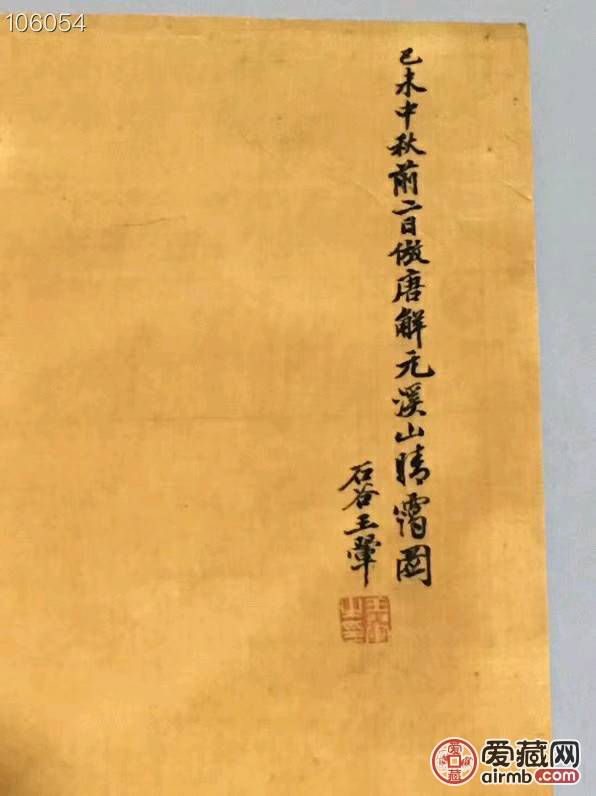 106054
己未中秋前二日倣唐解元溪山晴圖
石谷王翬
王翬之印
爱藏网
airmb.com